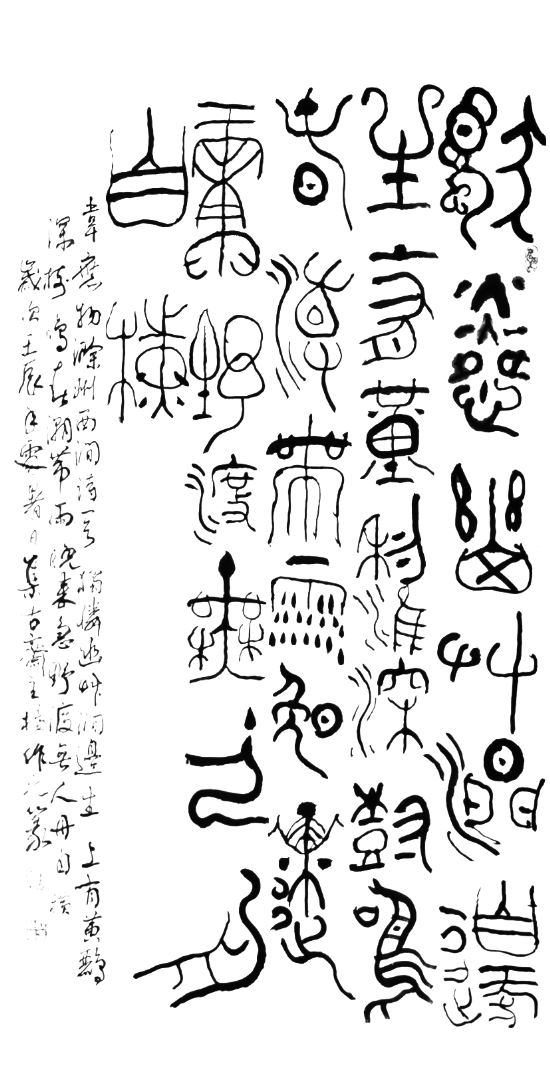 獨憐幽艸澗邊
生上有黃鸝深樹鳴
春潮帶雨晚來
急野渡無人舟
自橫
韋應物滁州西澗詩一首獨憐幽艸澗邊生上有黃鸝
深樹鳴春潮帶雨晚來急野渡無人舟自橫
歲次壬辰處暑日集古齋主作大篆